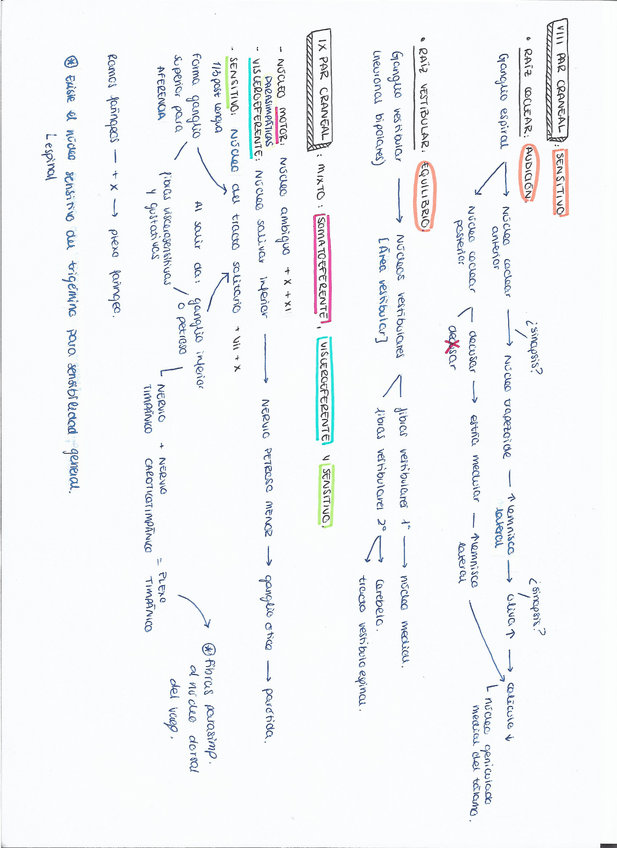 VIII PAR CRANEAL: SENSITIVO
• RAÍZ COCLEAR: AUDICIÓN
Ganglio espiral → Núcleo coclear anterior → Núcleo trapezoide — ↑lemnisco lateral → oliva ↑ → colículo ↓
¿sinapsis?
¿sinapsis?
Núcleo coclear posterior
decusar → estría medular — ↑lemnisco lateral
núcleo geniculado medial del tálamo.
• RAÍZ VESTIBULAR: EQUILIBRIO
Ganglio vestibular (neuronas bipolares) → Núcleos vestibulares [Área vestibular]
fibras vestibulares 1º → núcleo medial.
fibras vestibulares 2º → cerebelo.
tracto vestibuloespinal.
IX PAR CRANEAL: MIXTO: SOMATOEFERENTE, VISCEROEFERENTE Y SENSITIVO.
- NÚCLEO MOTOR: Núcleo ambiguo + X + XI
PARASIMPÁTICAS
- VISCEROEFERENTE: Núcleo salivar inferior → NERVIO PETROSO MENOR → ganglio ótico → parótida.
- SENSITIVO: Núcleo del tracto solitario + VII + X
1/3 post lengua
Forma ganglio superior para AFERENCIA
Al salir da: ganglio inferior o petroso
fibras viscerosensitivas y gustativas
NERVIO TIMPÁNICO + NERVIO CAROTICOTIMPÁNICO = PLEXO TIMPÁNICO
* Fibras parasimp. al núcleo dorsal del vago.
Ramos faríngeos — + X → plexo faríngeo.
* Existe el núcleo sensitivo del trigémino para sensibilidad general.
espinal